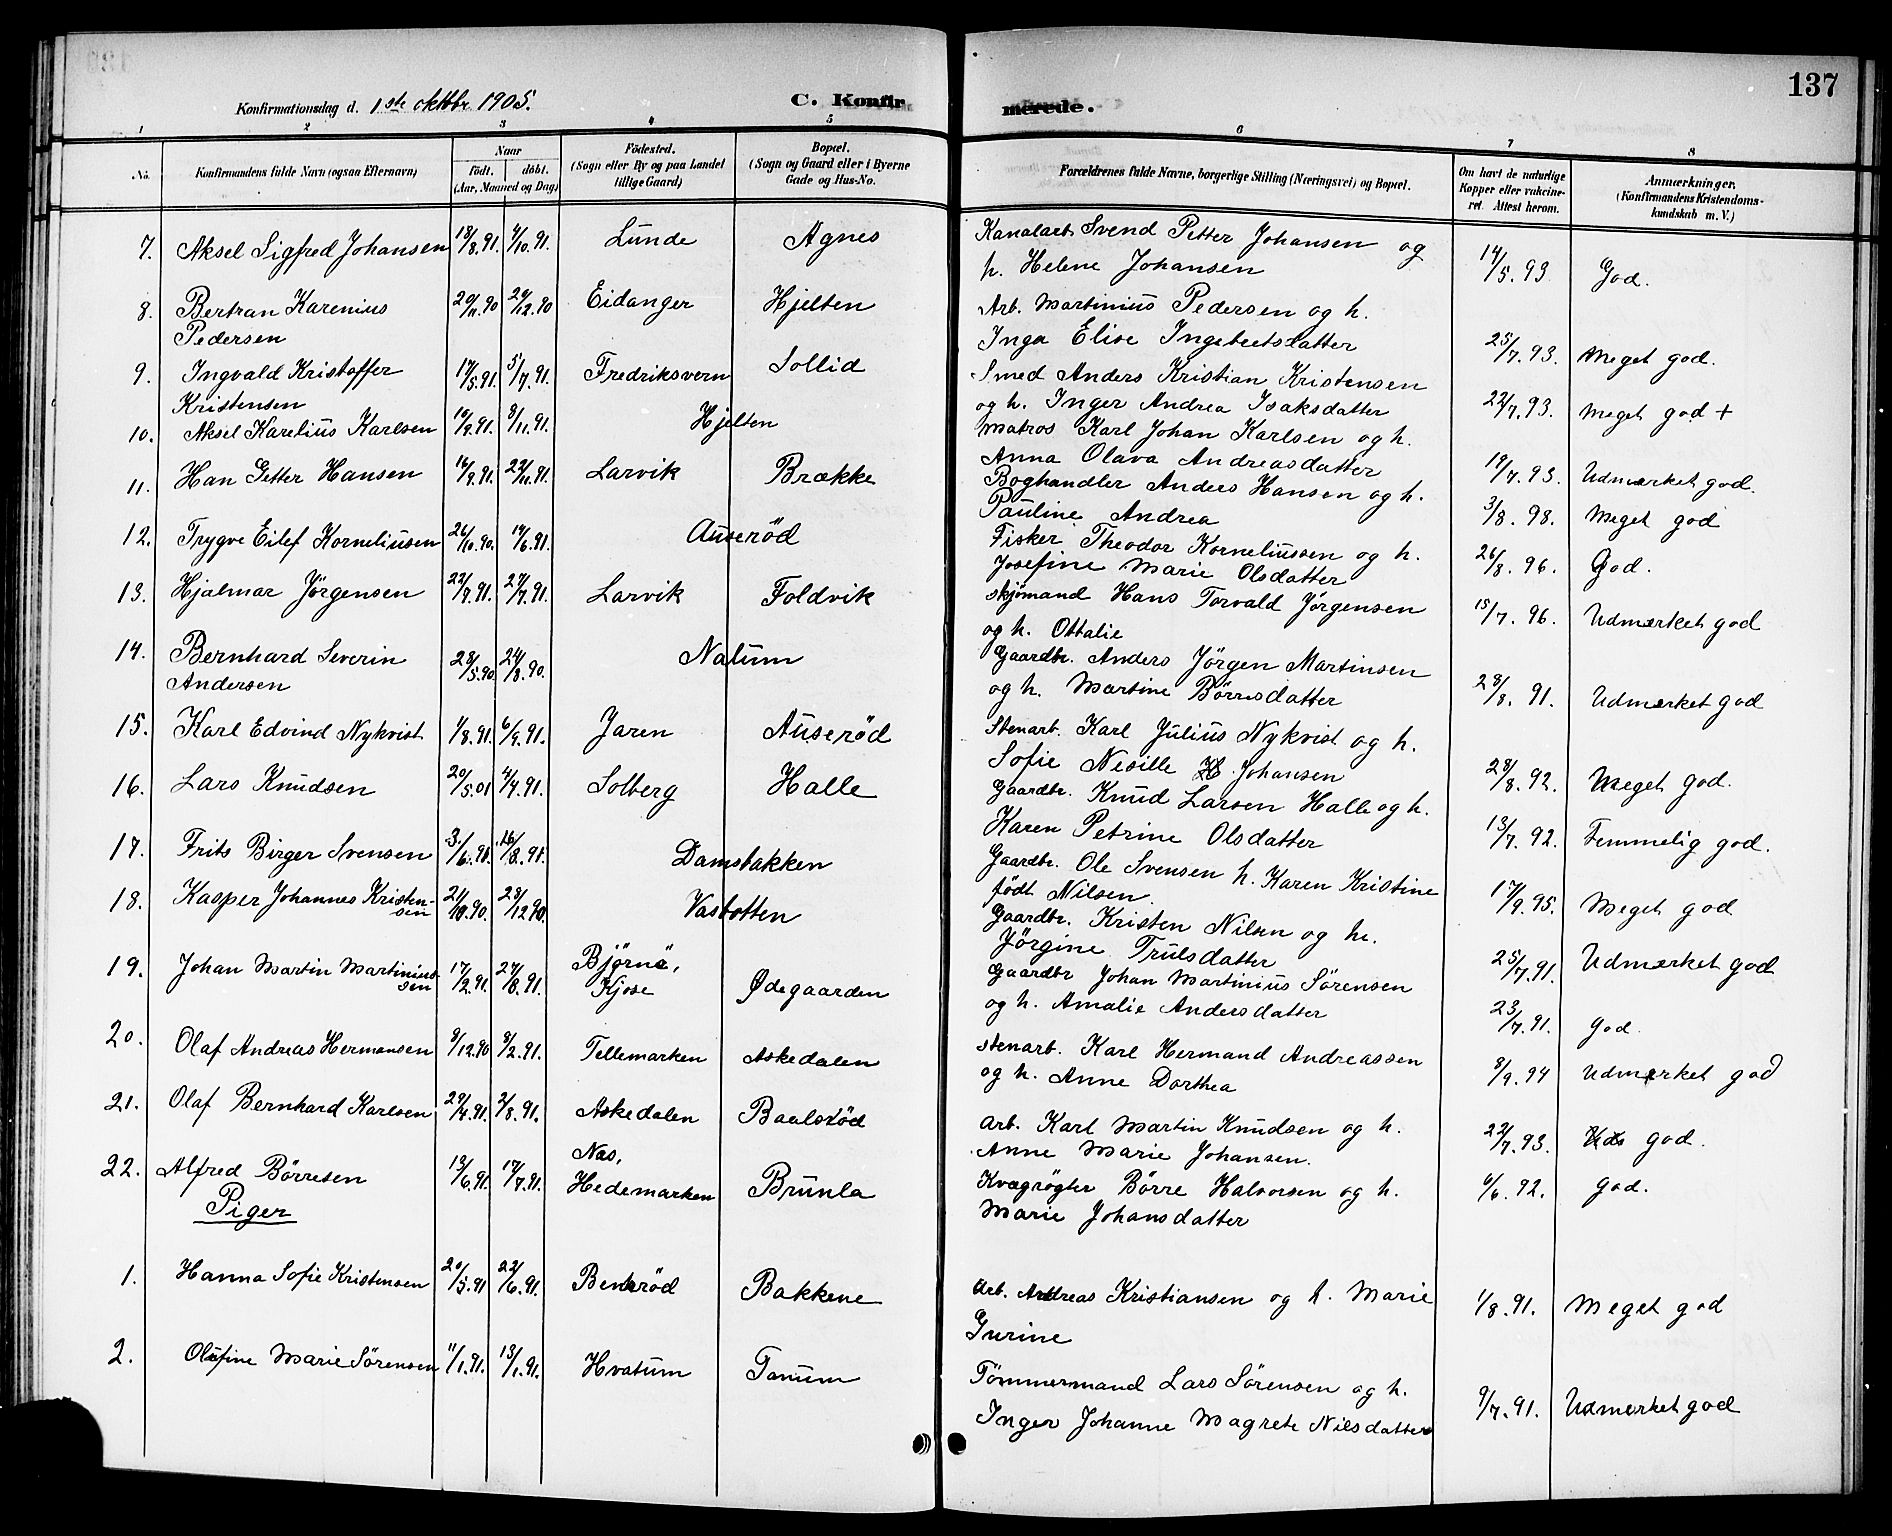 137
Konfirmationsdag d. 1ste oktbr. 1905.
C. Konfir
merede.
1 2 3 4 5 6 7 8
No.
Konfirmandens fulde Navn (ogsaa Efternavn)
Naar
født. døbt.
(Aar, Maaned og Dag)
Fødested.
(Sogn eller By og paa Landet
tillige Gaard)
Bopæl.
(Sogn og Gaard eller i Byerne
Gade og Hus-No.
Forældrenes fulde Navne, borgerlige Stilling (Næringsvei) og Bopæl.
Om havt de naturlige
Kopper eller vakcine-
ret. Attest herom.
Anmærkninger.
(Konfirmandens Kristendoms-
kundskab m. V.)
7. Aksel Sigfred Johansen 18/8.91. 4/10.91. Lunde Agnes Kanalarb. Svend Petter Johansen og
h. Helene Johansen 14/5.93. God.
8. Bertran Karenius 20/11.90 29/12.90 Eidanger Hjelten Arb. Martinius Pedersen og h.
Pedersen Inga Elise Ingebretsdatter 25/7.93. Meget god.
9. Ingvald Kristoffer 17/5.91. 5/7.91. Fredriksvern Sollid Smed Anders Kristian Kristensen
Kristensen og h. Inger Andrea Isaksdatter 22/7.93. Meget god +
10. Aksel Karelius Karlsen 10/9.91. 8/11.91. Hjelten Matros Karl Johan Karlsen og h.
Anna Olava Andreasdatter 19/7.93. Udmærket god.
11. Han Petter Hansen 16/9.91. 22/11.91. Larvik Brække Boghandler Anders Hansen og h.
Pauline Andrea 3/8.98. Meget god
12. Trygve Eilef Korneliusen 26/10.90. 14/6.91. Auserød Fisker Theodor Korneliussen og h.
Josefine Marie Olsdatter 26/8.96. God.
13. Hjalmar Jørgensen 22/4.91. 27/7.91. Larvik Foldvik Skjømand Hans Torvald Jørgensen
og h. Ottalie 15/7.96. Udmærket god
14. Bernhard Severin 28/5.90 24/8.90. Nalum Gaardbr. Anders Jørgen Martinsen
Andersen og h. Martine Børresdatter 28/8.91. Udmærket god
15. Karl Edvind Nykvist 1/8.91. 6/9.91. Jaren Auserød Stenarb. Karl Julius Nykvist og h.
Sofie Nesille Johansen 28/8.92. Meget god.
16. Lars Knudsen 20/5.01 4/4.91. Solberg Halle Gaardbr. Knud Larsen Halle og h.
Karen Petrine Olsdatter 13/7.92. Temmelig god.
17. Frits Birger Svensen 3/6.91. 16/8.91. Damsbakken Gaardbr. Ole Svensen h. Karen Kristine
født Nilsen. 17/9.95. Meget god
18. Kasper Johannes Kristen- 21/10.90. 28/12.90. Vasbotten Gaardbr. Kristen Nilsen og h.
sen Jørgine Trulsdatter 25/7.91. Udmærket god
19. Johan Martin Martinius- 17/2.91. 27/8.91. Bjørnø, Ødegaarden Gaardbr Johan Martinius Sørensen
sen Kjose og h. Amalie Andersdatter 23/7.91. God.
20. Olaf Andreas Hermansen 9/12.90 9/2.91. Tellemarken Askedalen Stenarb. Karl Hermand Andreassen
og h. Anne Dorthea 8/9.94 Udmærket god
21. Olaf Bernhard Karlsen 29/4.91. 2/8.91. Askedalen Baalsrød Arb. Karl Martin Knudsen og h.
Anne Marie Johansen. 22/7.93. god.
22. Alfred Børresen 13/6.91. 17/7.91. Nas, Brunla Kvægrøgter Børre Halvorsen og h.
Hedemarken Marie Johansdatter 6/6.92. God.
Piger
1. Hanna Sofie Kristensen 20/5.91 22/6.91. Benkrød Bakkene Arb. Andreas Kristiansen og h. Marie
Gurine 1/8.91. Meget god
2. Olufine Marie Sørensen 11/1.91. 13/1.91. Hvatum Tanum Tømmermand Lars Sørensen og h.
Inger Johanne Magrete Nilsdatter 9/7.91. Udmerket god